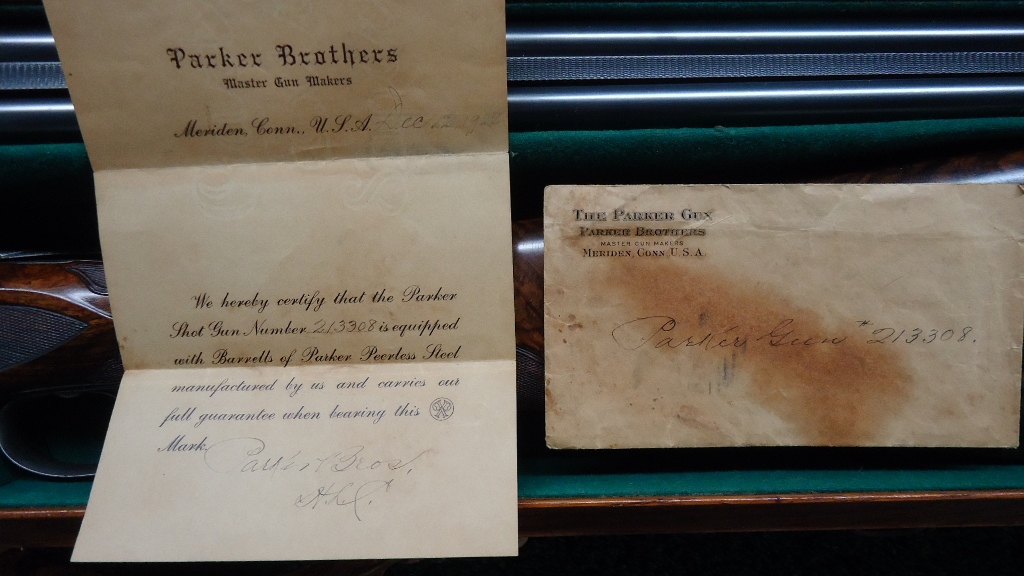 Parker Brothers
Master Gun Makers
Meriden, Conn., U.S.A. Dec
We hereby certify that the Parker
Shot Gun Number 213308 is equipped
with Barrells of Parker Peerless Steel
manufactured by us and carries our
full guarantee when bearing this
Mark.
Parker Bros.
THE PARKER GUN
PARKER BROTHERS
MASTER GUN MAKERS
MERIDEN, CONN. U.S.A.
Parker Gun # 213308.